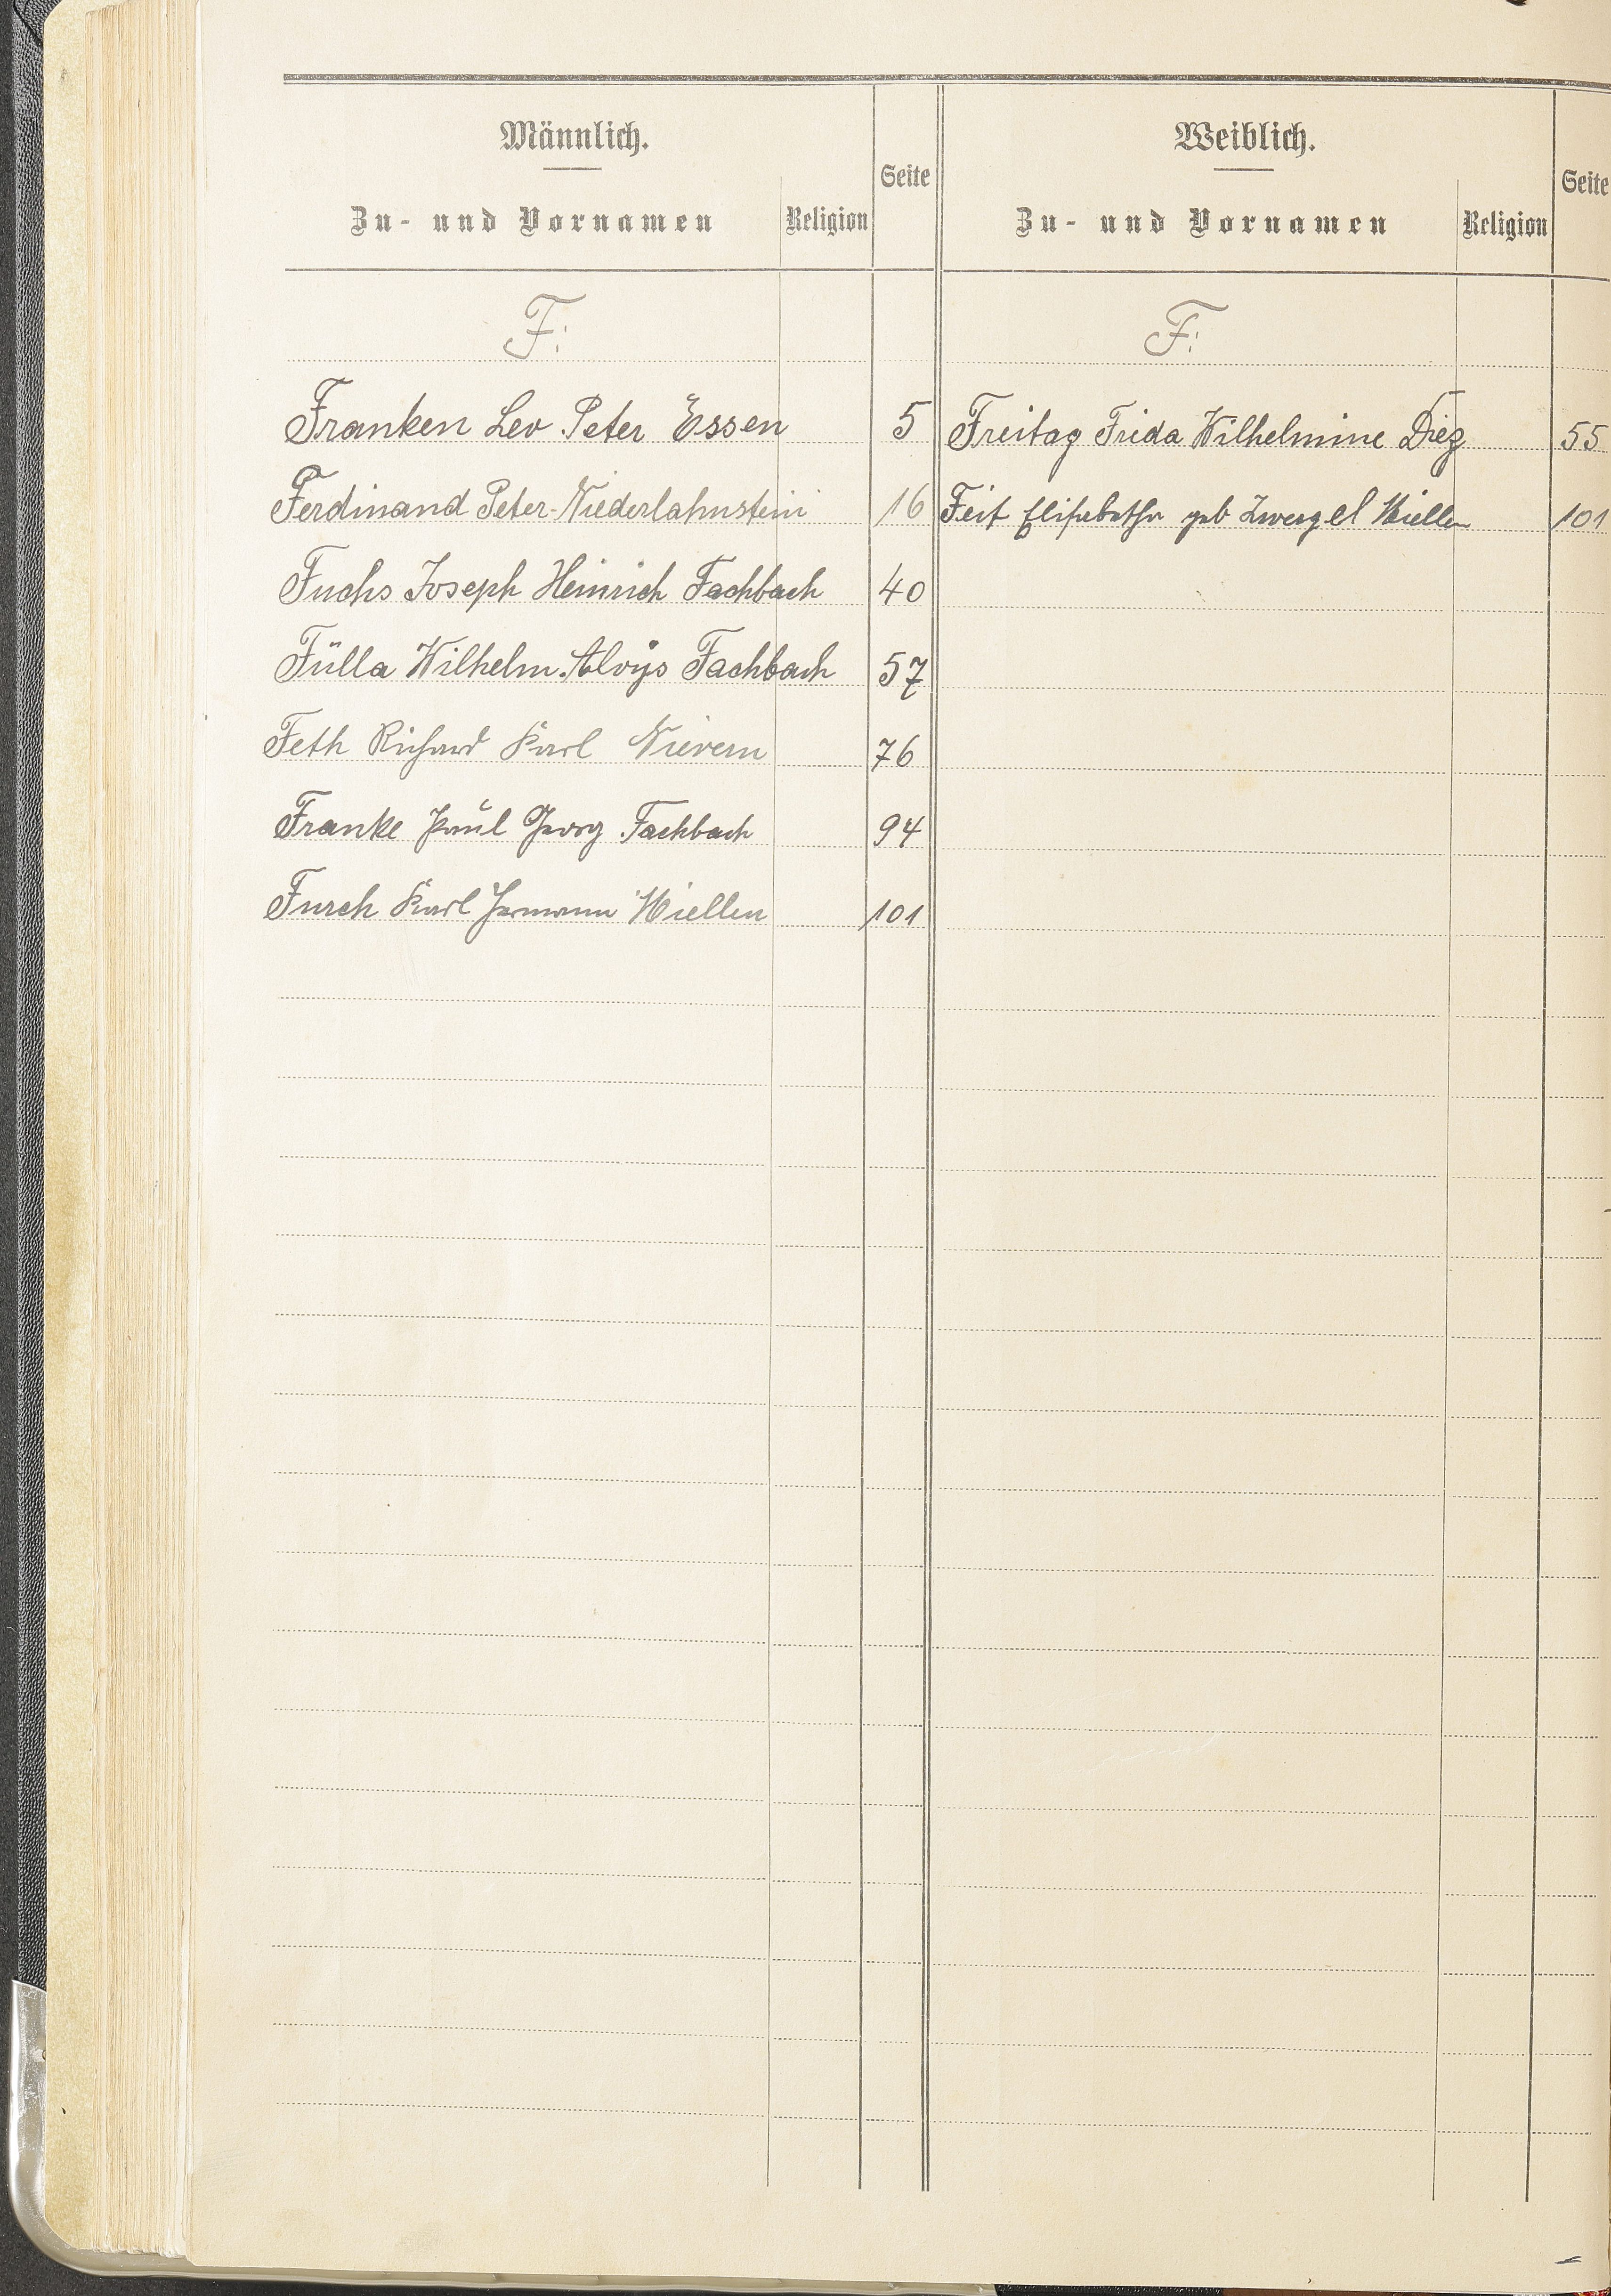 Männlich.
Zu- und Vornamen
Religion
Seite
F:
Franken Leo Peter Essen 5
Ferdinand Peter-Niederlahnstein 16
Fuchs Joseph Heinrich Fachbach 40
Fülla Wilhelm Aloys Fachbach 57
Feth Richard Karl Nievern 76
Franke Paul Georg Fachbach 94
Furch Karl Hermann Miellen 101
Weiblich.
Zu- und Vornamen
Religion
Seite
F:
Freitag Frida Wilhelmine Diez 55
Feit Elisabetha geb Zwergel Miellen 101